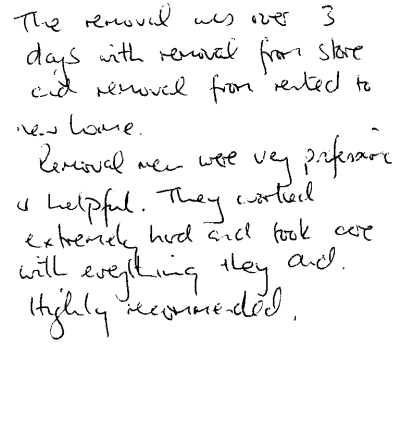 The removal was over 3
days with removal from store
and removal from rented to
new home.
Removal men were very professional
& helpful. They worked
extremely hard and took care
with everything they did.
Highly recommended.